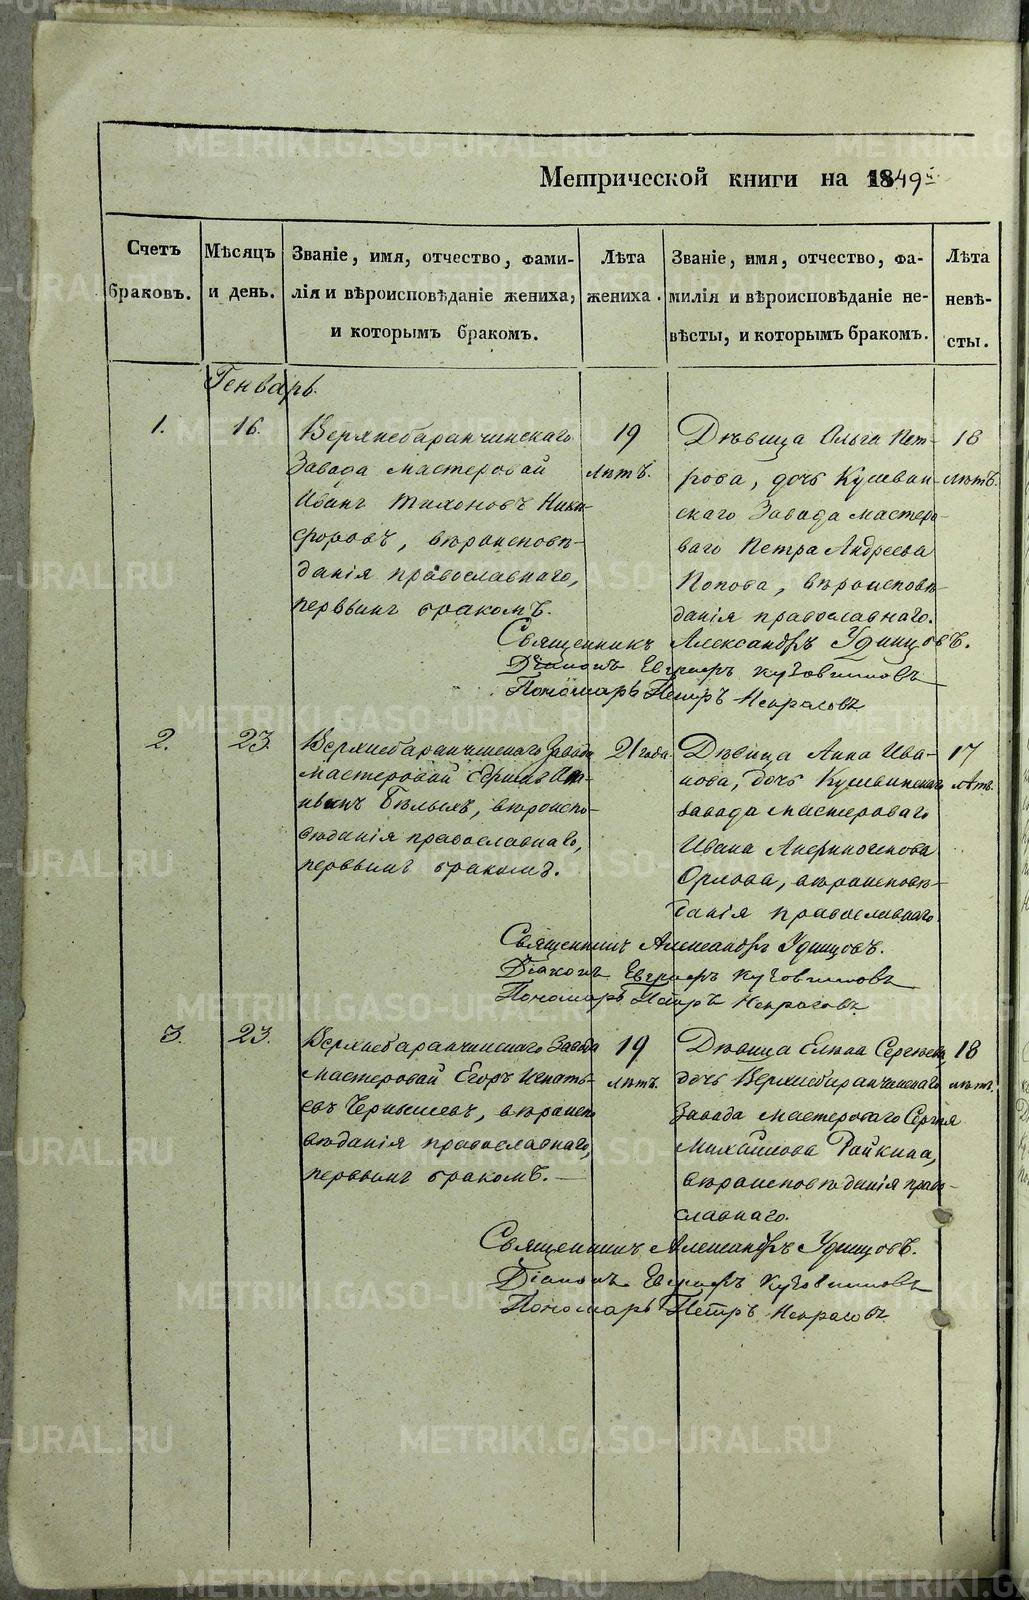 Метрической книги на 1849й
Счетъ браковъ.
Мѣсяцъ и день.
Званіе, имя, отчество, фами-
лія и вѣроисповѣданіе жениха,
и которымъ бракомъ.
Лѣта
жениха.
Званіе, имя, отчество, фа-
милія и вѣроисповѣданіе не-
вѣсты, и которымъ бракомъ.
Лѣта
невѣ-
сты.
Генварь.
1.
16.
Верхнебаранчинскаго
Завода мастеровой
Иванъ Тихоновъ Ники-
форовъ, вѣроисповѣ-
данія православнаго,
первымъ бракомъ.
19
лѣтъ.
Дѣвица Ольга Пет-
рова, дочь Кушвин-
скаго Завода мастеро-
ваго Петра Андреева
Попова, вѣроисповѣ-
данія православнаго.
18
лѣтъ.
Священникъ Александръ Удинцовъ.
Діаконъ Евграфъ
Пономарь Петръ Некрасовъ
2.
23.
Верхнебаранчинскаго Завода
мастеровой
Бѣлыхъ, вѣроиспо-
вѣданія православнаго,
первымъ бракомъ.
21 года
Дѣвица Анна Ива-
нова, дочь Кушвинскаго
завода мастероваго
Ивана
Орлова, вѣроисповѣ-
данія православнаго.
17
лѣтъ.
Священникъ Александръ Удинцовъ.
Діаконъ Евграфъ
Пономарь Петръ Некрасовъ
3.
23.
Верхнебаранчинскаго Завода
мастеровой Егоръ Игнать-
евъ Чернышевъ, вѣроиспо
вѣданія православнаго,
первымъ бракомъ.
19
лѣтъ.
Дѣвица Елена Сергѣева,
дочь Верхнебаранчинскаго
Завода мастероваго Сергѣя
Михайлова Райкина,
вѣроисповѣданія право-
славнаго.
18
лѣтъ.
Священникъ Александръ Удинцовъ.
Діаконъ Евграфъ
Пономарь Петръ Некрасовъ
METRIKI.GASO-URAL.RU